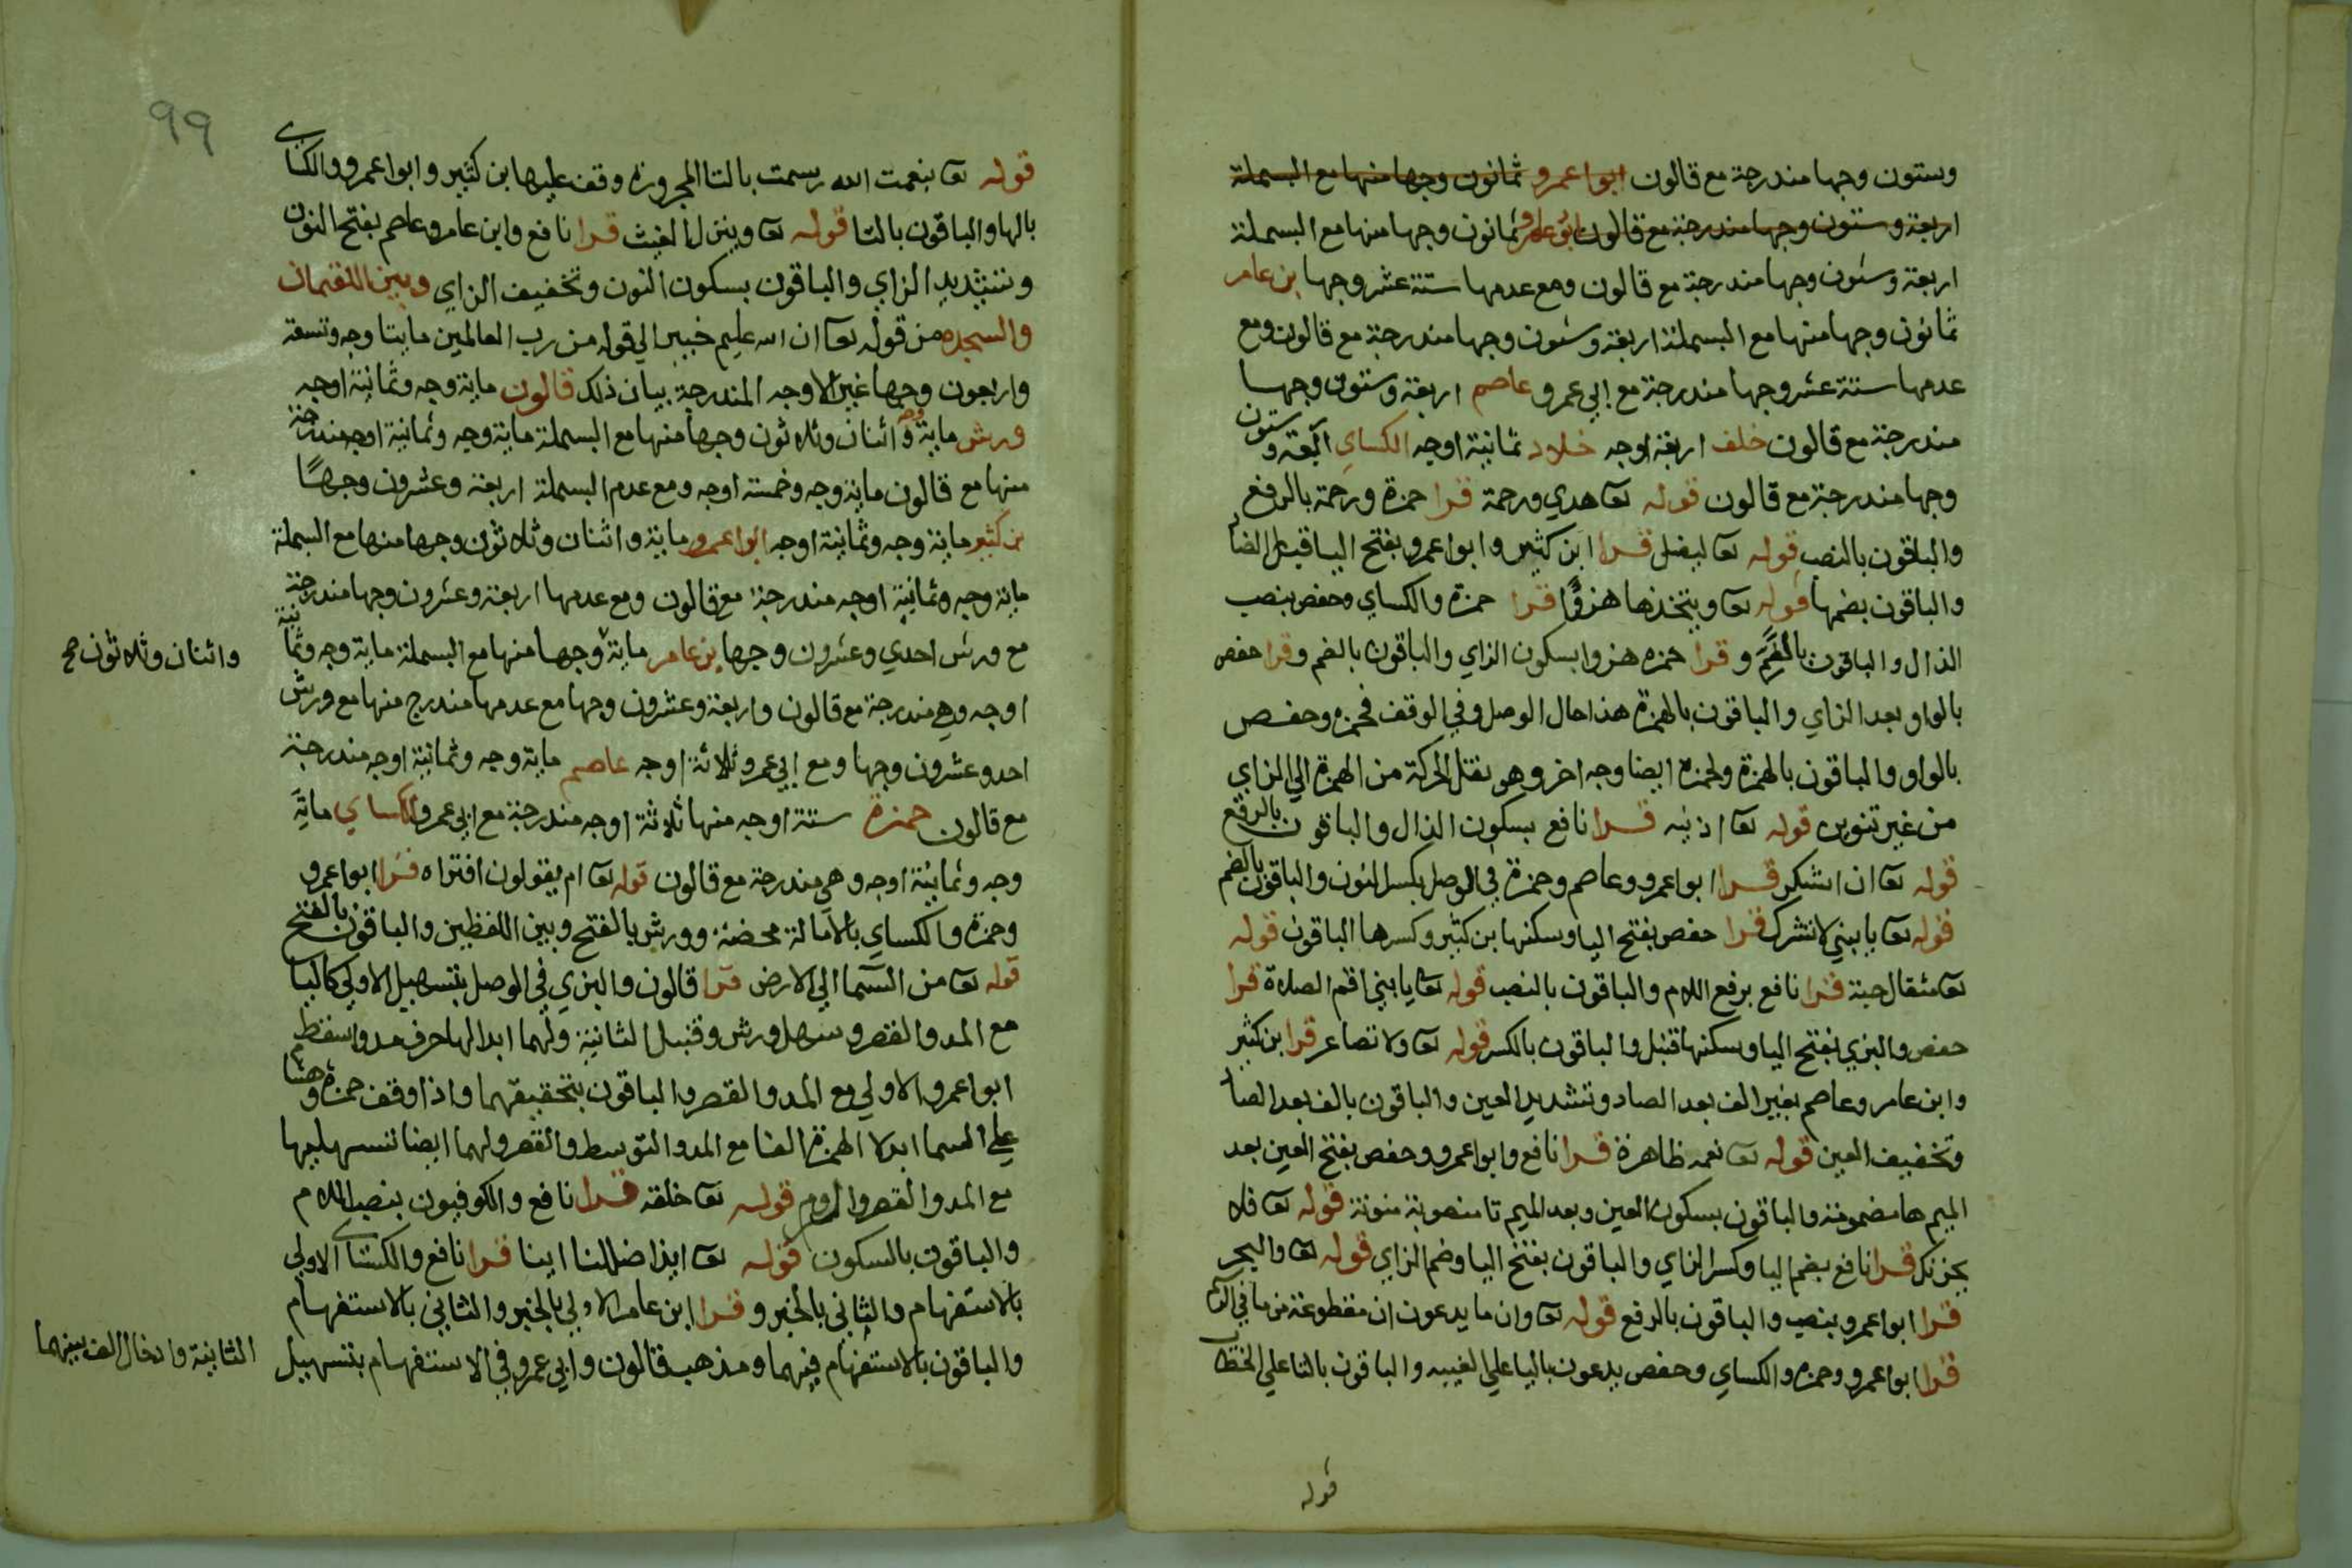 وستون وجها مندرجة مع قالون ابوا عمرو ثمانون وجها منها مع البسملة
اربعة وستون وجها مندرجة مع قالون ابوا عمرو ثمانون وجها منها مع البسملة
اربعة وستون وجها مندرجة مع قالون ومع عدمها ستة عشر وجها بن عامر
ثمانون وجها منها مع البسملة اربعة وستون وجها مندرجة مع قالون ومع
عدمها ستة عشر وجها مندرجة مع ابي عمرو عاصم اربعة وستون وجها
مندرجة مع قالون خلف اربعة اوجه خلاد ثمانية اوجه الكساي اربعة وستون
وجها مندرجة مع قالون قوله تعا هدي ورحمة قرا حمزة ورحمة بالرفع
والباقون بالنصب قوله تعا ليضل قرا ابن كثير وابوا عمرو بفتح اليا قبل الضاد
والباقون بضمها قوله تعا ويتخذها هزوًا قرا حمزة والكساي وحفص بنصب
الذال والباقون بالضم وقرا حمزه هزوا بسكون الزاي والباقون بالضم وقرا حفص
بالواو بعد الزاي والباقون بالهمزة هذا حال الوصل وفي الوقف فحمزه وحفص
بالواو والباقون بالهمزة ولحمزه ايضا وجه اخر وهو نقل الحركة من الهمزة الي الزاي
من غير تنوين قوله تعا اذنيه قرا نافع بسكون الذال والباقون بالرفع
قوله تعا ان اشكر قرا ابوا عمرو وعاصم وحمزة في الوصل بكسر النون والباقون بالضم
قوله تعا يا بني لا تشرك قرا حفص بفتح اليا وسكنها بن كثير وكسرها الباقون قوله
تعا مثقال حبة قرا نافع برفع اللام والباقون بالنصب قوله تعا يا بني اقم الصلاة قرا
حفص والبزي بفتح اليا وسكنها قنبل والباقون بالكسر قوله تعا ولا تصاعر قرا ابن كثير
وابن عامر وعاصم بغير الف بعد الصاد وتشديد العين والباقون بالف بعد الصاد
وتخفيف العين قوله تعا نعمه ظاهرة قرا نافع وابوا عمرو وحفص بفتح العين بعد
الميم ها مضمومة والباقون بسكون العين وبعد الميم تا منصوبة منونة قوله تعا فلا
يحزنك قرا نافع بضم اليا وكسر الزاي والباقون بفتح اليا وضم الزاي قوله تعا والبحر
قرا ابوا عمرو بنصب والباقون بالرفع قوله تعا وان ما يدعون ان مقطوعة من ما في
قرا ابوا عمرو وحمزه والكساي وحفص يدعون باليا علي الغيبه والباقون بالتا علي الخطاب
قوله
٩٩
قوله تعا بنعمت الله رسمت بالتا المجرورة وقف عليها بن كثير وابوا عمرو والكساي
بالها والباقون بالتا قوله تعا وينزل الغيث قرا نافع وابن عامر وعاصم بفتح النون
وتشديد الزاي والباقون بسكون النون وتخفيف الزاي وبين اللقمان
والسجده من قوله تعا ان الله عليم خبير الي قوله من رب العالمين مايتا وجه وتسعة
واربعون وجها غير الاوجه المندرجة بيان ذلك قالون ماية وجه وثمانية اوجه
ورش ماية وجه واثنان وثلاثون وجها منها مع البسملة ماية وجه وثمانية اوجه مندرجة
منها مع قالون ماية وجه وخمسة اوجه ومع عدم البسملة اربعة وعشرون وجهًا
بن كثير ماية وجه وثمانية اوجه ابوا عمرو ماية واثنان وثلاثون وجها منها مع البسملة
ماية وجه وثمانية اوجه مندرجة مع قالون ومع عدمها اربعة وعشرون وجها مندرجة
مع ورش احدي وعشرون وجها بن عامر ماية وجها منها مع البسملة ماية وجه وثمانية
واثنان وثلاثون صح
اوجه وهي مندرجة مع قالون واربعة وعشرون وجها مع عدمها مندرج منها مع ورش
احد وعشرون وجها ومع ابي عمرو ثلاثة اوجه عاصم ماية وجه وثمانية اوجه مندرجة
مع قالون حمزة ستة اوجه منها ثلاثة اوجه مندرجة مع ابي عمرو الكساي ماية
وجه وثمانية اوجه وهي مندرجة مع قالون قوله تعا ام يقولون افتراه قرا ابوا عمرو
وحمزه والكساي بالامالة محضة وورش بالفتح وبين اللفظين والباقون بالفتح
قوله تعا من السما الي الارض قرا قالون والبزي في الوصل بتسهيل الاولي كاليا
مع المد والقصر وسهل ورش وقنبل الثانية ولهما ابدالها حرف مد واسقط
ابوا عمرو الاولي مع المد والقصر والباقون بتحقيقهما واذا وقف حمزة وهشام
علي السما ابدلا الهمزة الفا مع المد والتوسط والقصر ولهما ايضا تسهيلها
مع المد والقصر والروم قوله تعا خلقه قرا نافع والكوفيون بنصب اللام
والباقون بالسكون قوله تعا ايذا ضللنا اينا قرا نافع والكساي الاولي
بالاستفهام والثاني بالخبر وقرا ابن عامر الاولي بالخبر والثاني بالاستفهام
والباقون بالاستفهام فيهما ومذهب قالون وابي عمرو في الاستفهام بتسهيل
الثانية وادخال الف بينهما